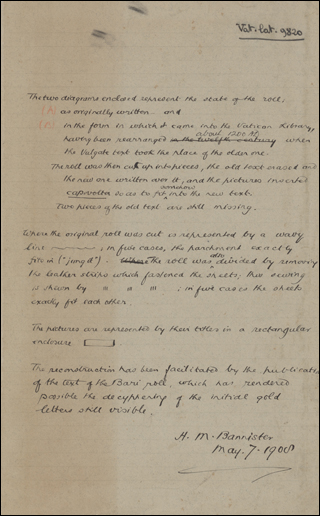 Vat. lat. 9820
The two diagrams enclosed represent the state of the roll:
(A) as originally written. and
(B) in the form in which it came into the Vatican Library,
having been rearranged in the twelfth century about 1200 AD when
the Vulgate text took the place of the older one.
The roll was then cut up into pieces, the old text erased and
the new one written over it, and the pictures inserted
capovolta so as to fit somehow into the new text.
Two pieces of the old text are still missing.
Where the original roll was cut is represented by a wavy
line ; in five cases, the parchment exactly
fits in ("jungd"). Where The roll was also divided by removing
the leather strips which fastened the sheets; this
is shewn by " " " ; in four cases the sheets
exactly fit each other.
The pictures are represented by their titles in a rectangular
enclosure
The reconstruction has been facilitated by the publicatio
of the text of the Bari roll, which has rendered
possible the decyphering of the initial gold
letters still visible.
H. M. Bannister
May. 7. 1908